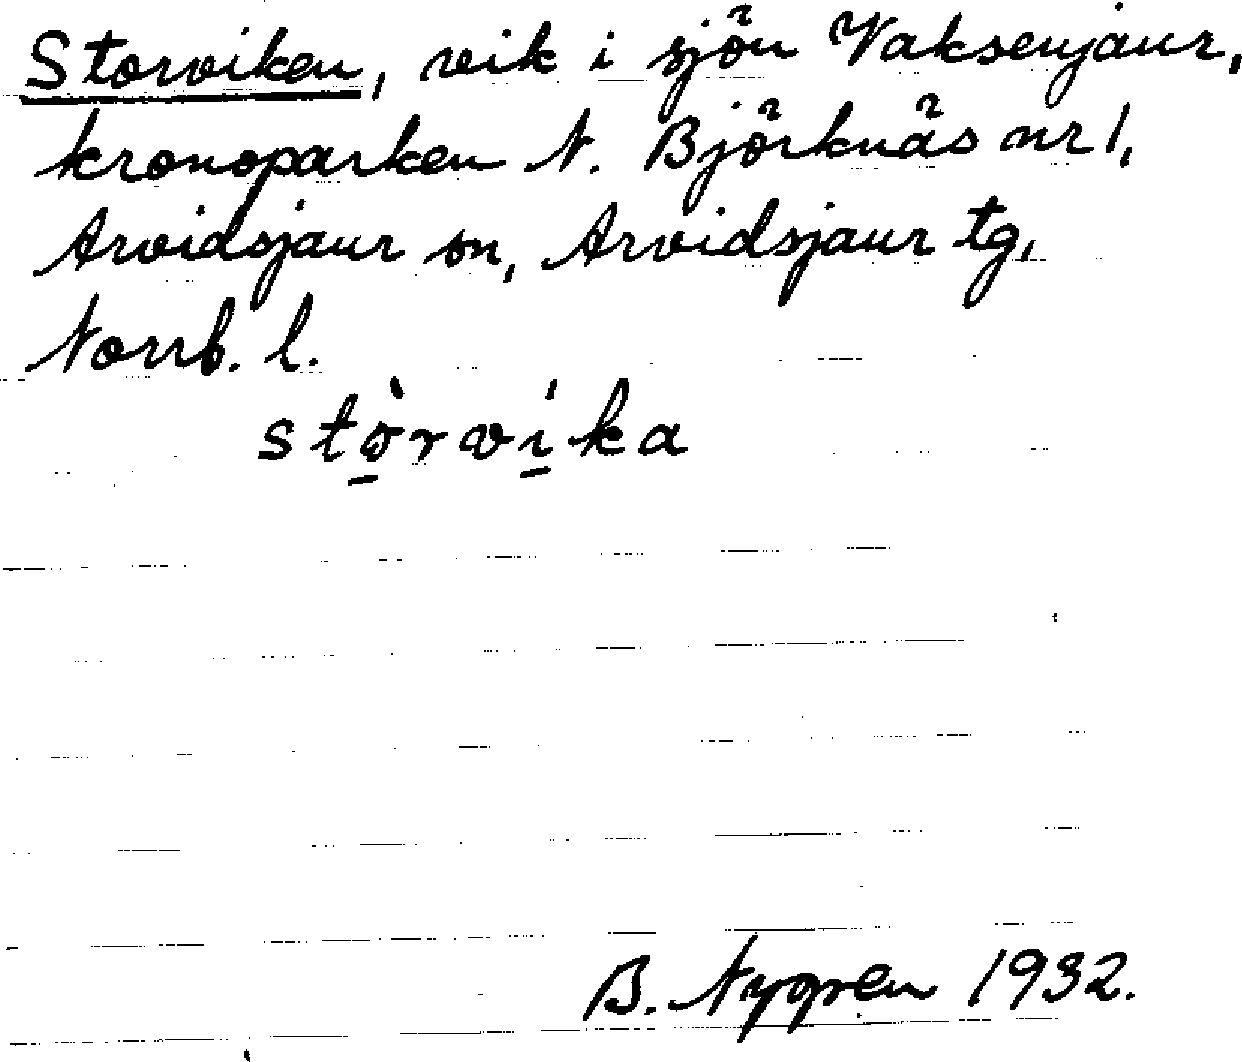 Storviken, vik i sjön Vaksenjaur,
kronoparken N. Björknäs nr 1,
Arvidsjaur sn, Arvidsjaur tg,
Norrb. l.
stò̠rvi̠ka
B. Nygren 1932.